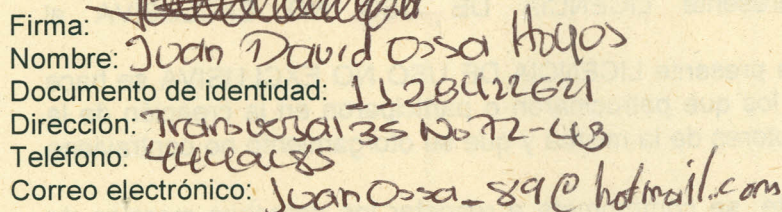 Firma:
Nombre: Juan David Ossa Hoyos
Documento de identidad: 1128422621
Dirección: Transversal 35 No 72-43
Teléfono:
Correo electrónico: JuanOssa_89@hotmail.com